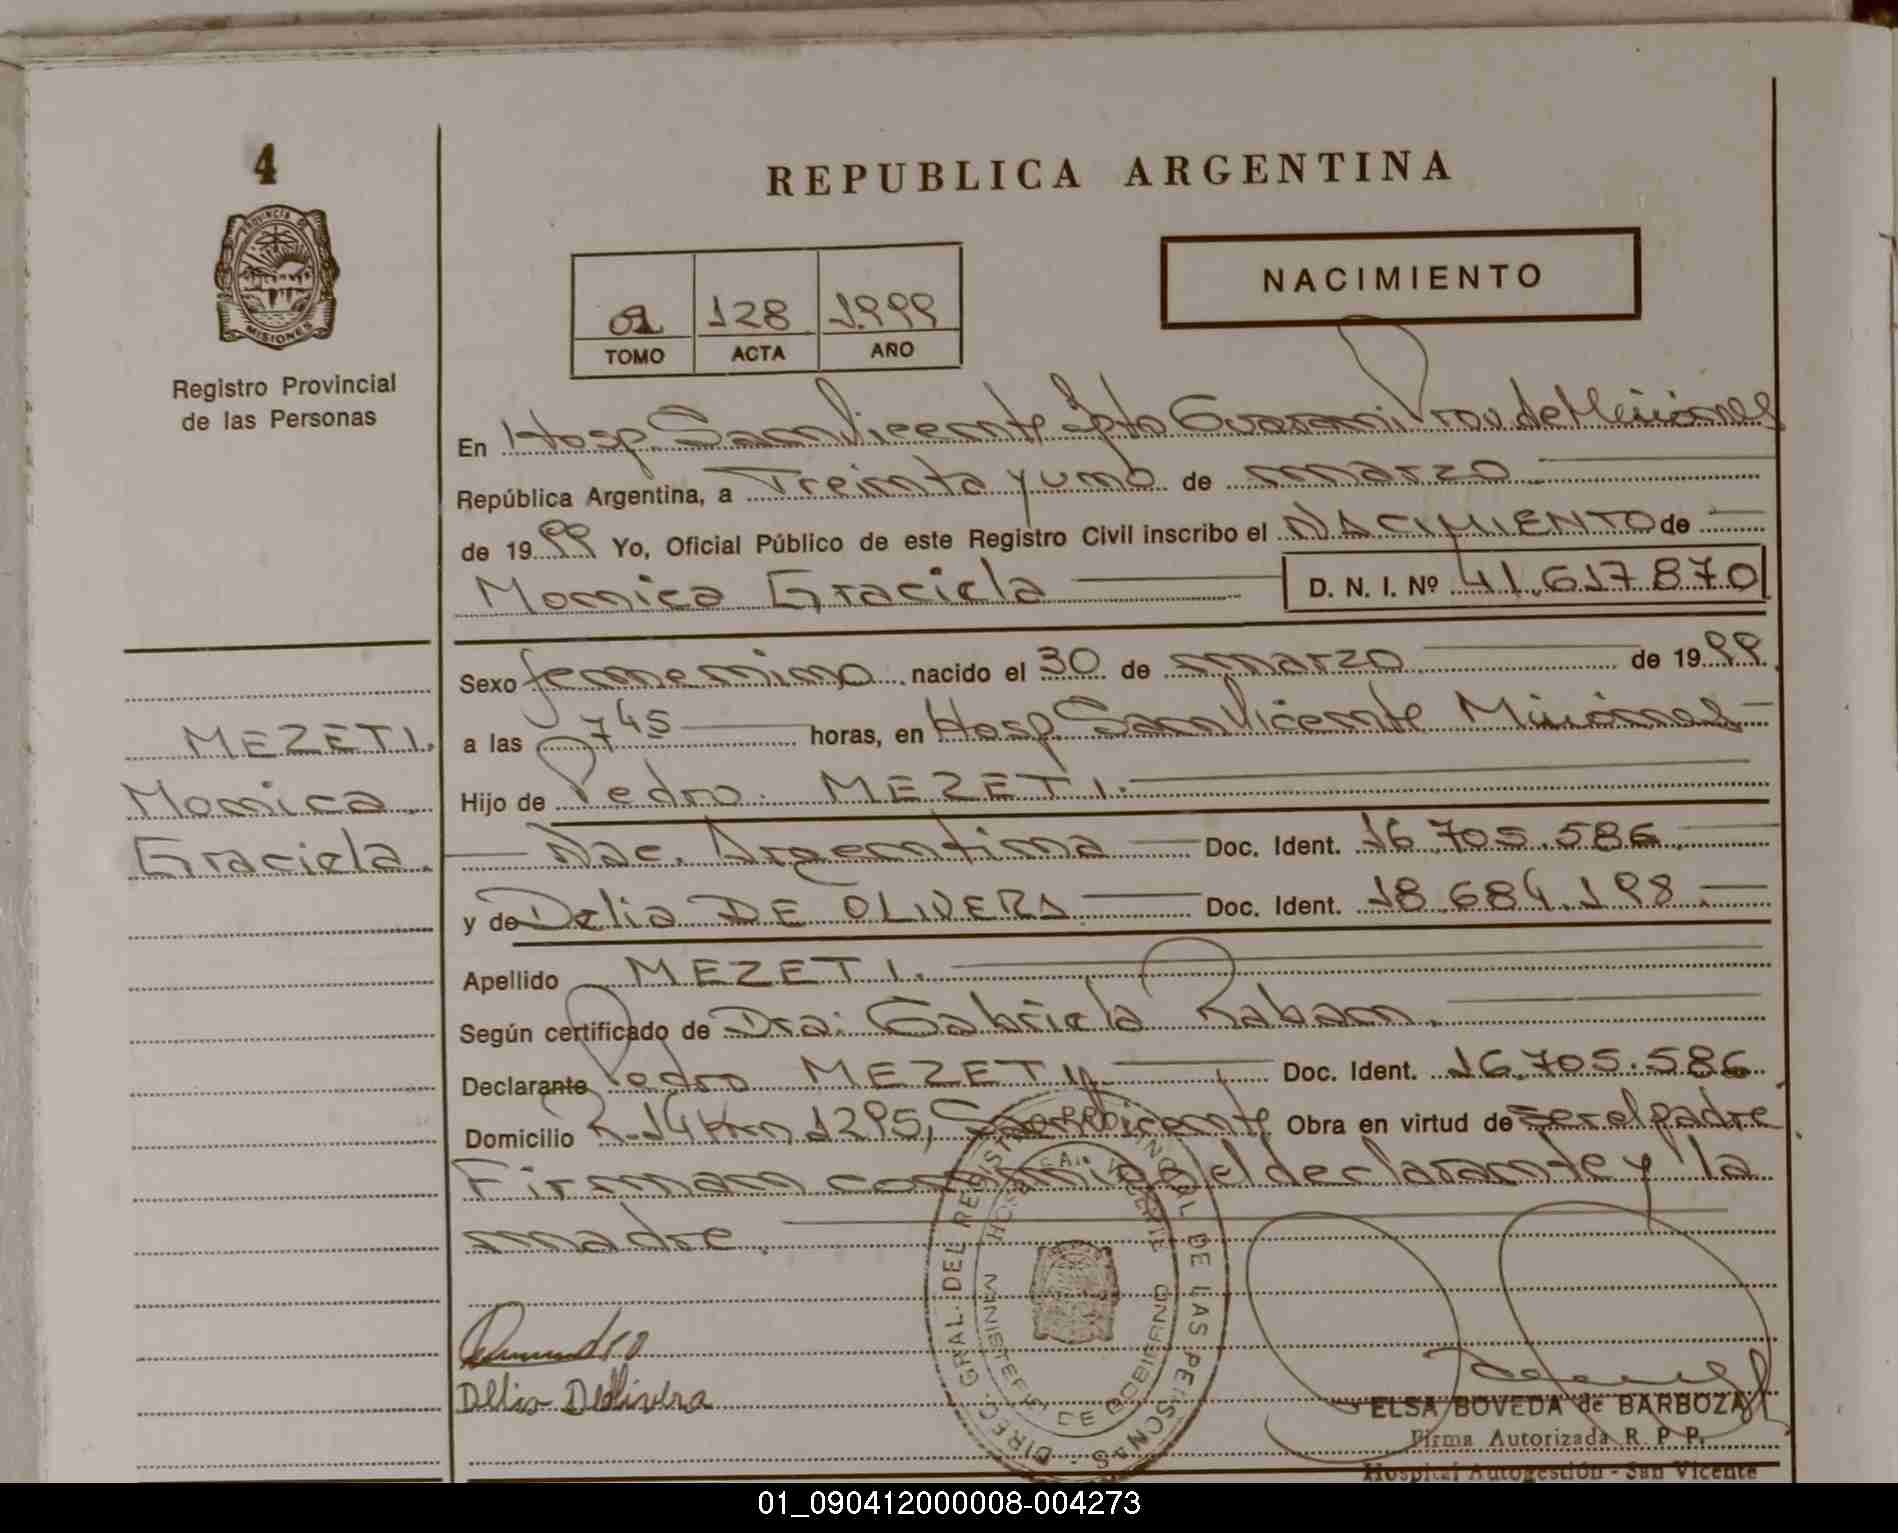 4
PROVINCIA DE
MISIONES
Registro Provincial
de las Personas
MEZETI.
Monica
Graciela.
REPUBLICA ARGENTINA
01 128 1.999
TOMO ACTA AÑO
NACIMIENTO
En Hosp. San Vicente Dpto Guarani Prov de Misiones
República Argentina, a Treinta y uno de marzo
de 1999 Yo, Oficial Público de este Registro Civil inscribo el NACIMIENTO de
Monica Graciela D. N. I. Nº 41.617.870
Sexo femenino nacido el 30 de marzo de 1999.
a las 7 45 horas, en Hosp. San Vicente Misiones
Hijo de Pedro. MEZETI.
Nac. Argentina Doc. Ident. 16.705.586.
y de Delia DE OLIVERA Doc. Ident. 18.684.198.
Apellido MEZETI.
Según certificado de Dra: Gabriela Raban.
Declarante Pedro MEZETI Doc. Ident. 16.705.586
Domicilio R.14 Km 1295, San Vicente Obra en virtud de ser el padre.
Firman conmigo el declarante y la
madre.
DIREC. GRAL. DEL REGISTRO PROVINCIAL DE LAS PERSONAS
HOSP. SAN VICENTE
MINISTERIO DE GOBIERNO
Delia Deolivera
ELSA BOVEDA de BARBOZA
Firma Autorizada R. P. P.
Hospital Autogestión - San Vicente
01_090412000008-004273